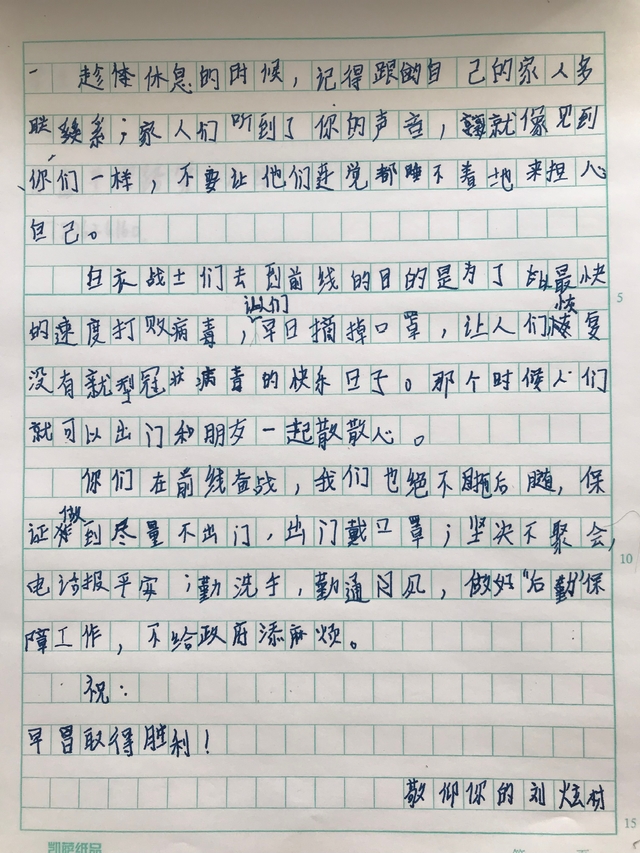 趁休息的时候，记得跟自己的家人多
联系；家人们听到了你的声音，就像见到
你们一样，不要让他们连觉都睡不着地来担心
自己。
白衣战士们去到前线的目的是为了以最快
的速度打败病毒，让人们早日摘掉口罩，让人们恢复
没有新型冠状病毒的快乐日子。那个时候人们
就可以出门和朋友一起散散心。
你们在前线奋战，我们也绝不拖后腿，保
证做到尽量不出门，出门戴口罩；坚决不聚会，
电话报平安；勤洗手，勤通风，做好“后勤”保
障工作，不给政府添麻烦。
祝：
早日取得胜利！
敬仰你的刘炫材
5
10
15
凯萨纸品